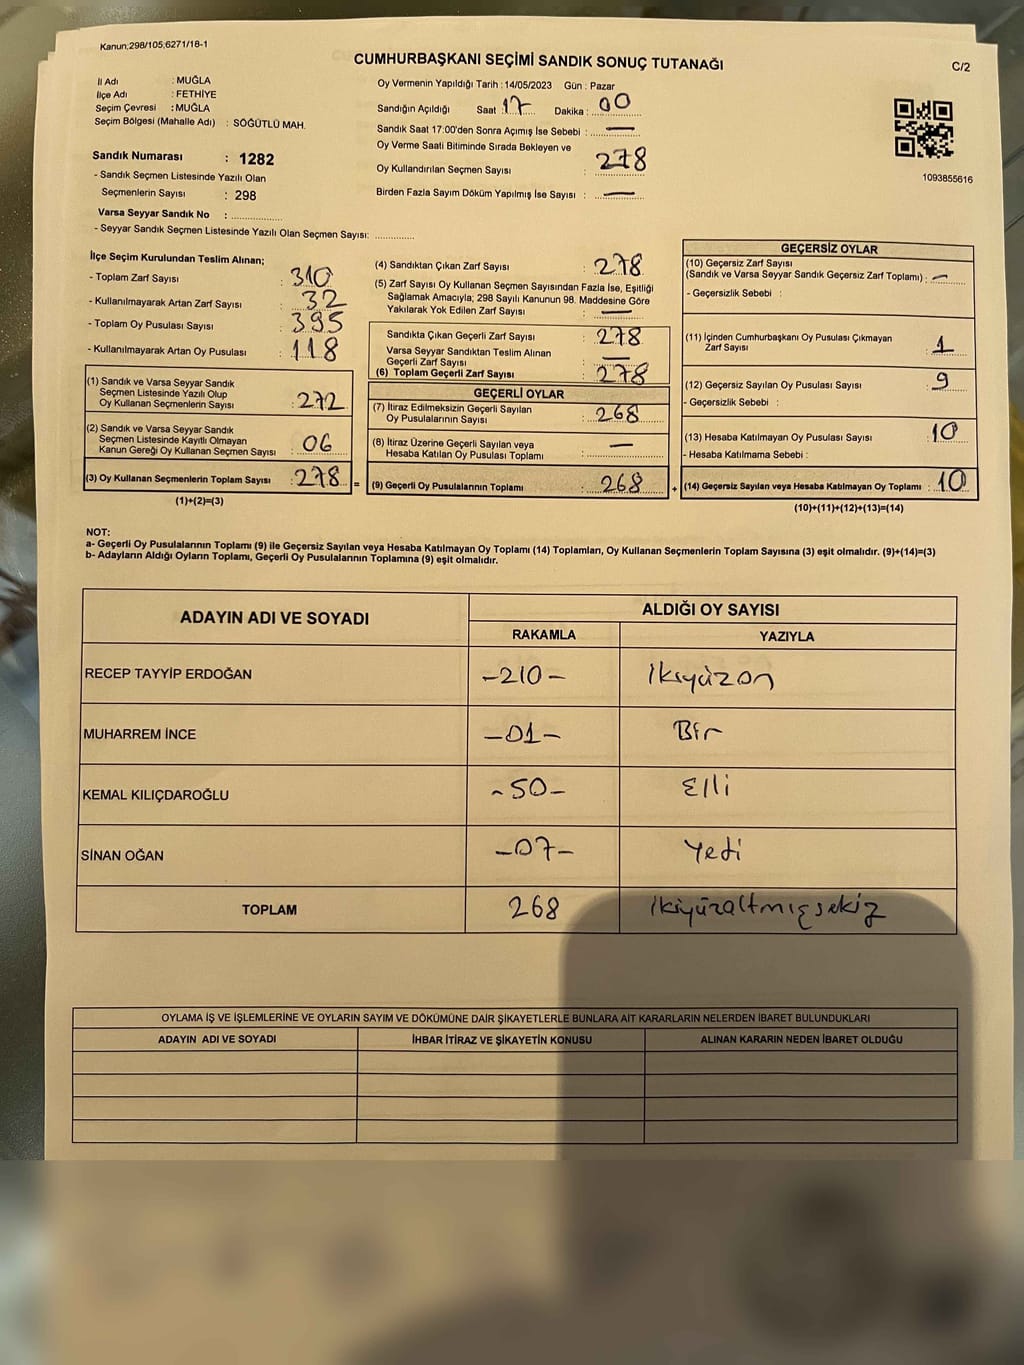 Kanun;298/105;6271/18-1
CUMHURBAŞKANI SEÇİMİ SANDIK SONUÇ TUTANAĞI
C/2
İl Adı : MUĞLA
İlçe Adı : FETHİYE
Seçim Çevresi : MUĞLA
Seçim Bölgesi (Mahalle Adı) : SÖĞÜTLÜ MAH.
Sandık Numarası : 1282
- Sandık Seçmen Listesinde Yazılı Olan
Seçmenlerin Sayısı : 298
Varsa Seyyar Sandık No :
- Seyyar Sandık Seçmen Listesinde Yazılı Olan Seçmen Sayısı:
Oy Vermenin Yapıldığı Tarih : 14/05/2023 Gün : Pazar
Sandığın Açıldığı Saat : 17 Dakika : 00
Sandık Saat 17:00'den Sonra Açımış İse Sebebi : —
Oy Verme Saati Bitiminde Sırada Bekleyen ve
Oy Kullandırılan Seçmen Sayısı : 278
Birden Fazla Sayım Döküm Yapılmış İse Sayısı : —
1093855616
İlçe Seçim Kurulundan Teslim Alınan;
- Toplam Zarf Sayısı : 310
- Kullanılmayarak Artan Zarf Sayısı : 32
- Toplam Oy Pusulası Sayısı : 395
- Kullanılmayarak Artan Oy Pusulası : 118
(1) Sandık ve Varsa Seyyar Sandık
Seçmen Listesinde Yazılı Olup
Oy Kullanan Seçmenlerin Sayısı : 272
(2) Sandık ve Varsa Seyyar Sandık
Seçmen Listesinde Kayıtlı Olmayan
Kanun Gereği Oy Kullanan Seçmen Sayısı : 06
(3) Oy Kullanan Seçmenlerin Toplam Sayısı : 278 =
(1)+(2)=(3)
(4) Sandıktan Çıkan Zarf Sayısı : 278
(5) Zarf Sayısı Oy Kullanan Seçmen Sayısından Fazla İse, Eşitliği
Sağlamak Amacıyla; 298 Sayılı Kanunun 98. Maddesine Göre
Yakılarak Yok Edilen Zarf Sayısı : —
Sandıkta Çıkan Geçerli Zarf Sayısı : 278
Varsa Seyyar Sandıktan Teslim Alınan
Geçerli Zarf Sayısı : —
(6) Toplam Geçerli Zarf Sayısı : 278
GEÇERLİ OYLAR
(7) İtiraz Edilmeksizin Geçerli Sayılan
Oy Pusulalarının Sayısı : 268
(8) İtiraz Üzerine Geçerli Sayılan veya
Hesaba Katılan Oy Pusulası Toplamı : —
(9) Geçerli Oy Pusulalarının Toplamı : 268 +
GEÇERSİZ OYLAR
(10) Geçersiz Zarf Sayısı
(Sandık ve Varsa Seyyar Sandık Geçersiz Zarf Toplamı) : —
- Geçersizlik Sebebi :
(11) İçinden Cumhurbaşkanı Oy Pusulası Çıkmayan
Zarf Sayısı : 1
(12) Geçersiz Sayılan Oy Pusulası Sayısı : 9
- Geçersizlik Sebebi :
(13) Hesaba Katılmayan Oy Pusulası Sayısı : 10
- Hesaba Katılmama Sebebi :
(14) Geçersiz Sayılan veya Hesaba Katılmayan Oy Toplamı : 10
(10)+(11)+(12)+(13)=(14)
NOT:
a- Geçerli Oy Pusulalarının Toplamı (9) ile Geçersiz Sayılan veya Hesaba Katılmayan Oy Toplamı (14) Toplamları, Oy Kullanan Seçmenlerin Toplam Sayısına (3) eşit olmalıdır. (9)+(14)=(3)
b- Adayların Aldığı Oyların Toplamı, Geçerli Oy Pusulalarının Toplamına (9) eşit olmalıdır.
ADAYIN ADI VE SOYADI ALDIĞI OY SAYISI
RAKAMLA YAZIYLA
RECEP TAYYİP ERDOĞAN -210- İkiyüzon
MUHARREM İNCE -01- Bir
KEMAL KILIÇDAROĞLU -50- Elli
SİNAN OĞAN -07- Yedi
TOPLAM 268 İkiyüzaltmışsekiz
OYLAMA İŞ VE İŞLEMLERİNE VE OYLARIN SAYIM VE DÖKÜMÜNE DAİR ŞİKAYETLERLE BUNLARA AİT KARARLARIN NELERDEN İBARET BULUNDUKLARI
ADAYIN ADI VE SOYADI İHBAR İTİRAZ VE ŞİKAYETİN KONUSU ALINAN KARARIN NEDEN İBARET OLDUĞU